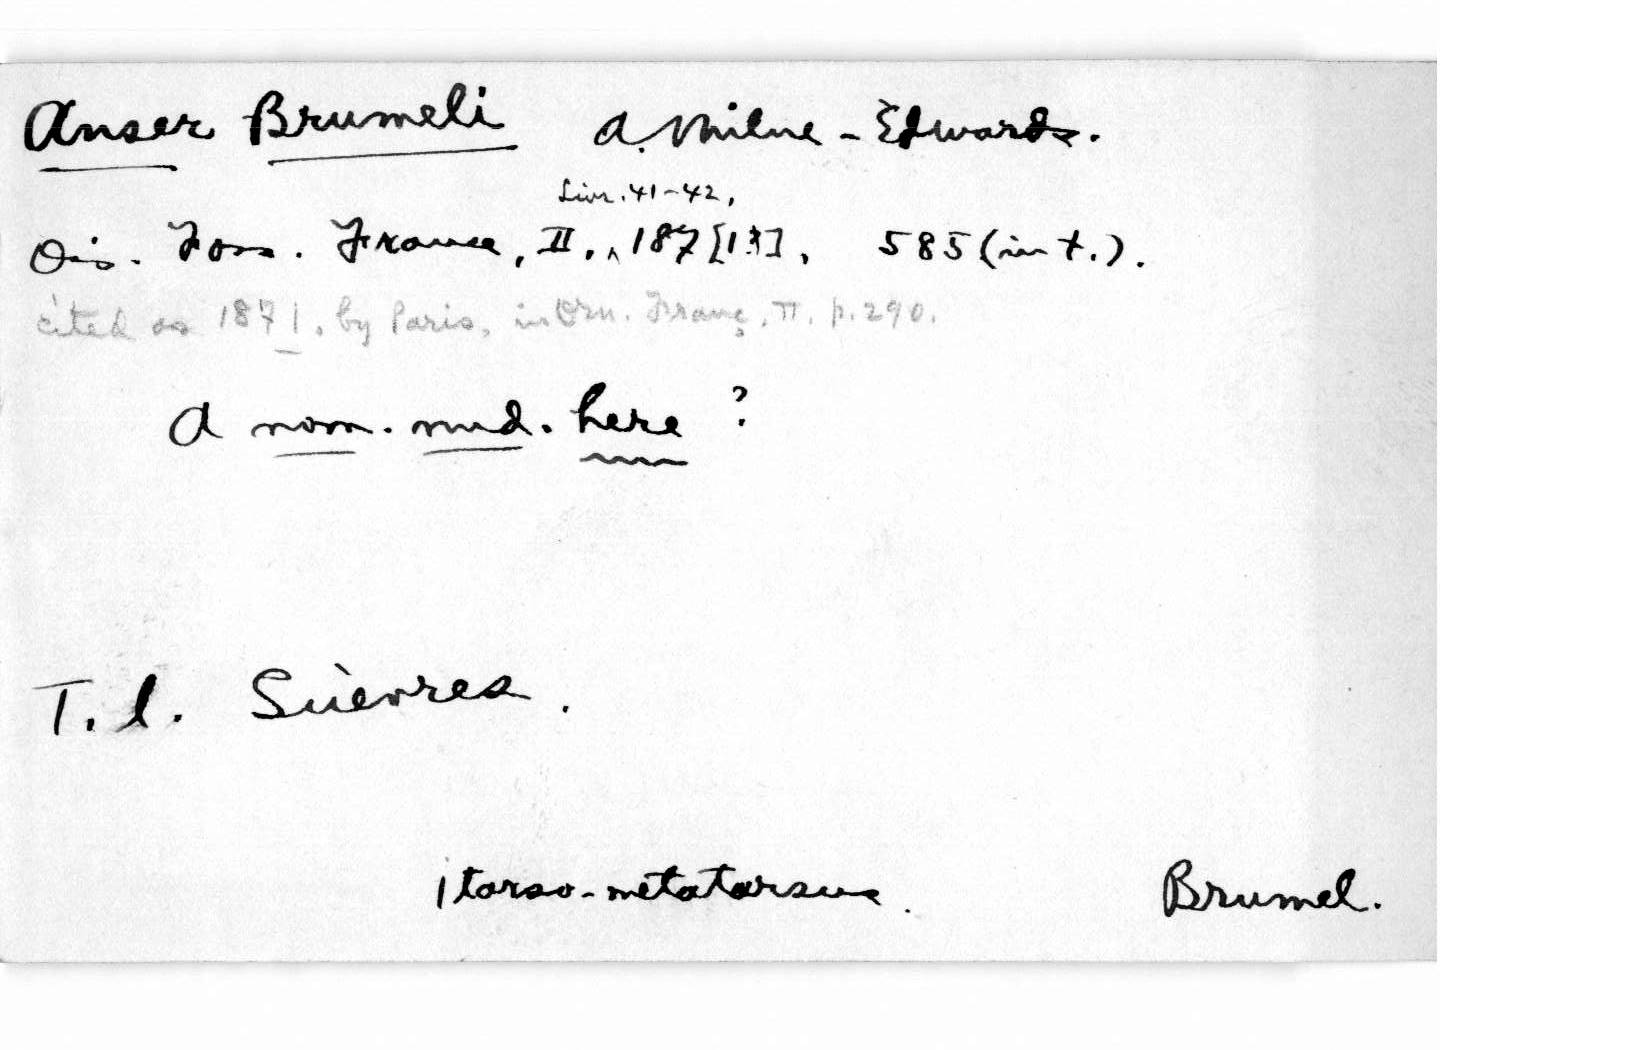 Anser Brumeli A. Milne-Edwards.
Livr. 41-42,
Ois. Foss. France, II., ^ 187[1?], 585 (in t.).
cited as 1871, by Paris, in Orn. Franç, II, p. 290.
A nom. nud. here ?
T. l. Sùevres.
1 tarso-metatarsus. Brumel.